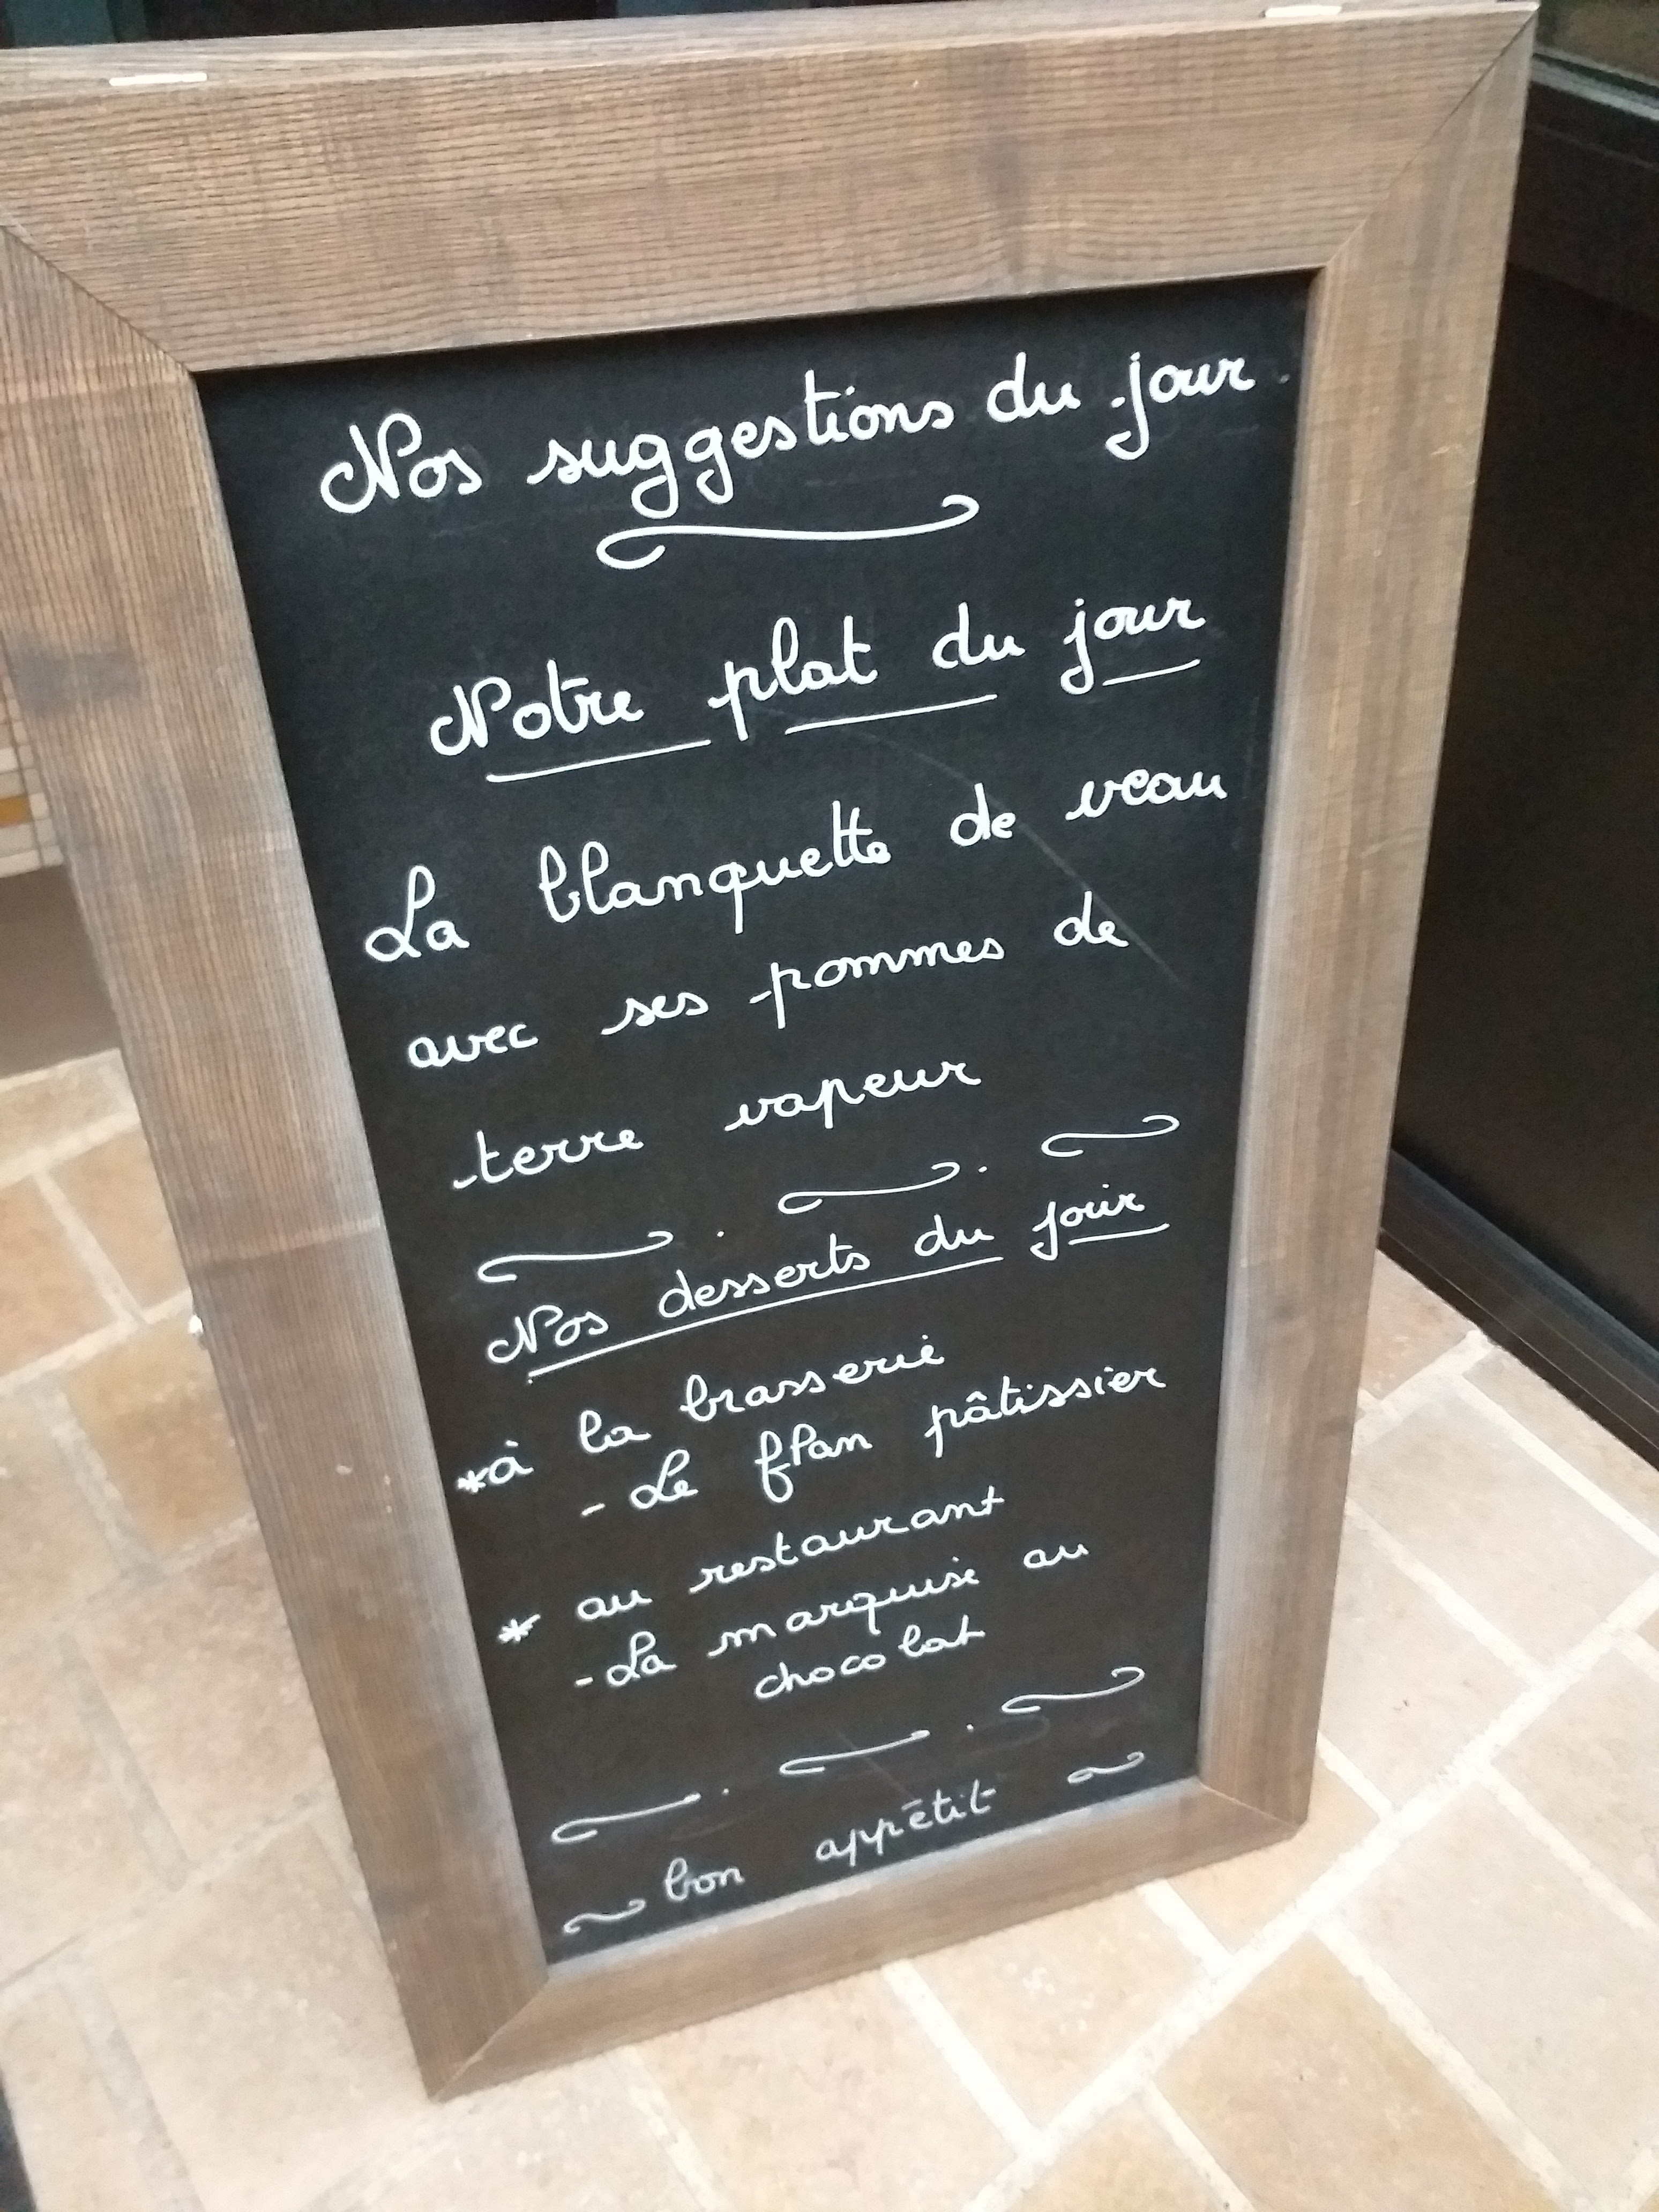 Nos suggestions du jour
Notre plat du jour
La blanquette de veau
avec ses pommes de
terre vapeur
Nos desserts du jour
*à la brasserie
- Le flan pâtissier
* au restaurant
- La marquise au
chocolat
bon appétit